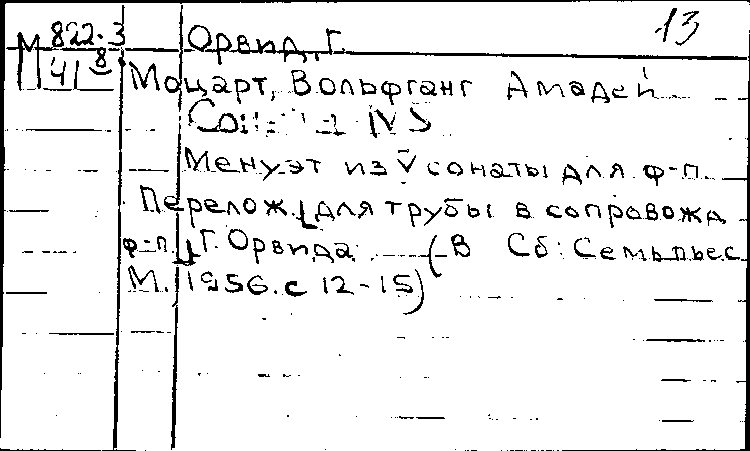 М 822.3 Орвид, Г. 13
41 8
Моцарт, Вольфганг Амадей
Менуэт из V сонаты для ф-п.
Перелож. [для трубы в сопровожд
ф-п.] Г. Орвида (В Сб: Семь пьес
М. 1956. с 12-15)